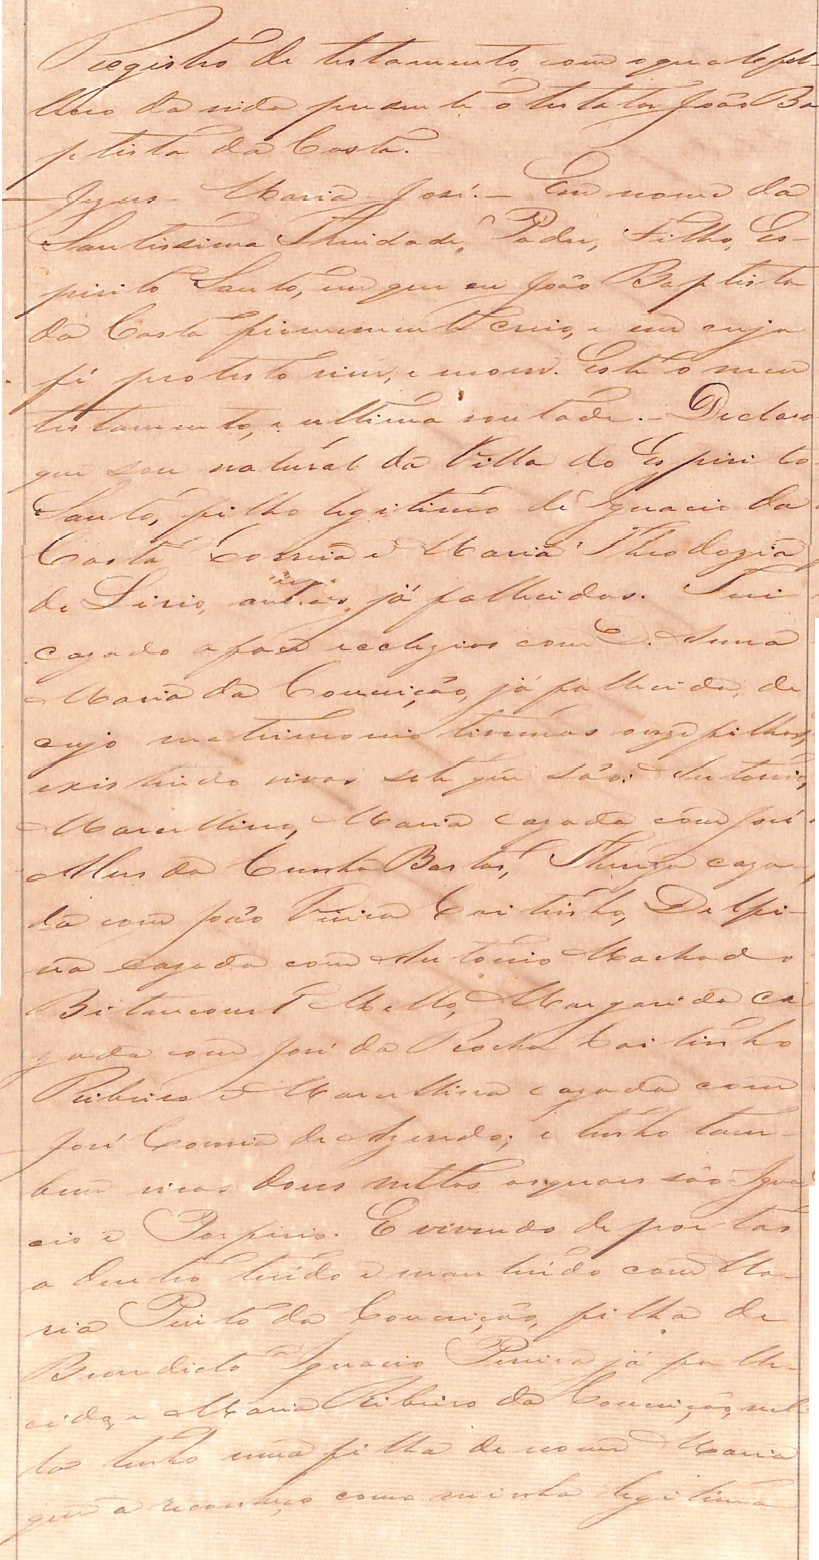 Registro de testamento, com o que a 
lheo da vida presente o testator João Ba
ptista da Costa.
Jezus - Maria - José. - Em nome da
Santissima Trindade, Padre, Filho, Es-
pirito Santo, em que eu João Baptista
da Costa firmemente creio, e em cuja
fé protesto viver, e morrer. Este o meu
testamento, e ultima vontade. - Declaro
que sou natural da Villa do Espirito
Santo, filho legitimo de Ignacio da
Costa Correia e Maria Theodozia
de Lirio, já fallecidos. Fui
cazado a face ecclezias com D. Anna
Maria da Conceição, já fallecida, de
cujo matrimonio tivemos onze filhos,
existindo vivos sete que são: Antonio,
Marcellino, Maria cazada com José
Alves da Cunha Bastos, Thereza caza-
da com João Vieira Coitinho, Delfi-
na cazada com Antonio Machado
Bitancourt Mello, Margarida ca
zada com José da Rocha Coitinho
Ribeiro e Marcellina cazada com
José Correia de Azeredo; e tenho tam-
bem vivos dous nettos os quaes são Igna
cio e Porfirio. E vivendo de portas
a dentro teúdo e manteúdo com Ma-
ria Pinto da Conceição, filha de
Benedicto Ignacio Pereira já falle-
cido, e Maria Ribeiro da Conceição, nel
la tenho uma filha de nome Maria
que a reconheço como minha legitima